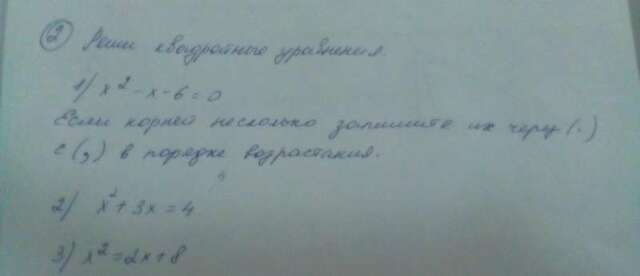 2 Реши квадратные уравнения.
1) x² - x - 6 = 0
Если корней несколько запишите их через (.)
с (,) в порядке возрастания.
2) x² + 3x = 4
3) x² = 2x + 8